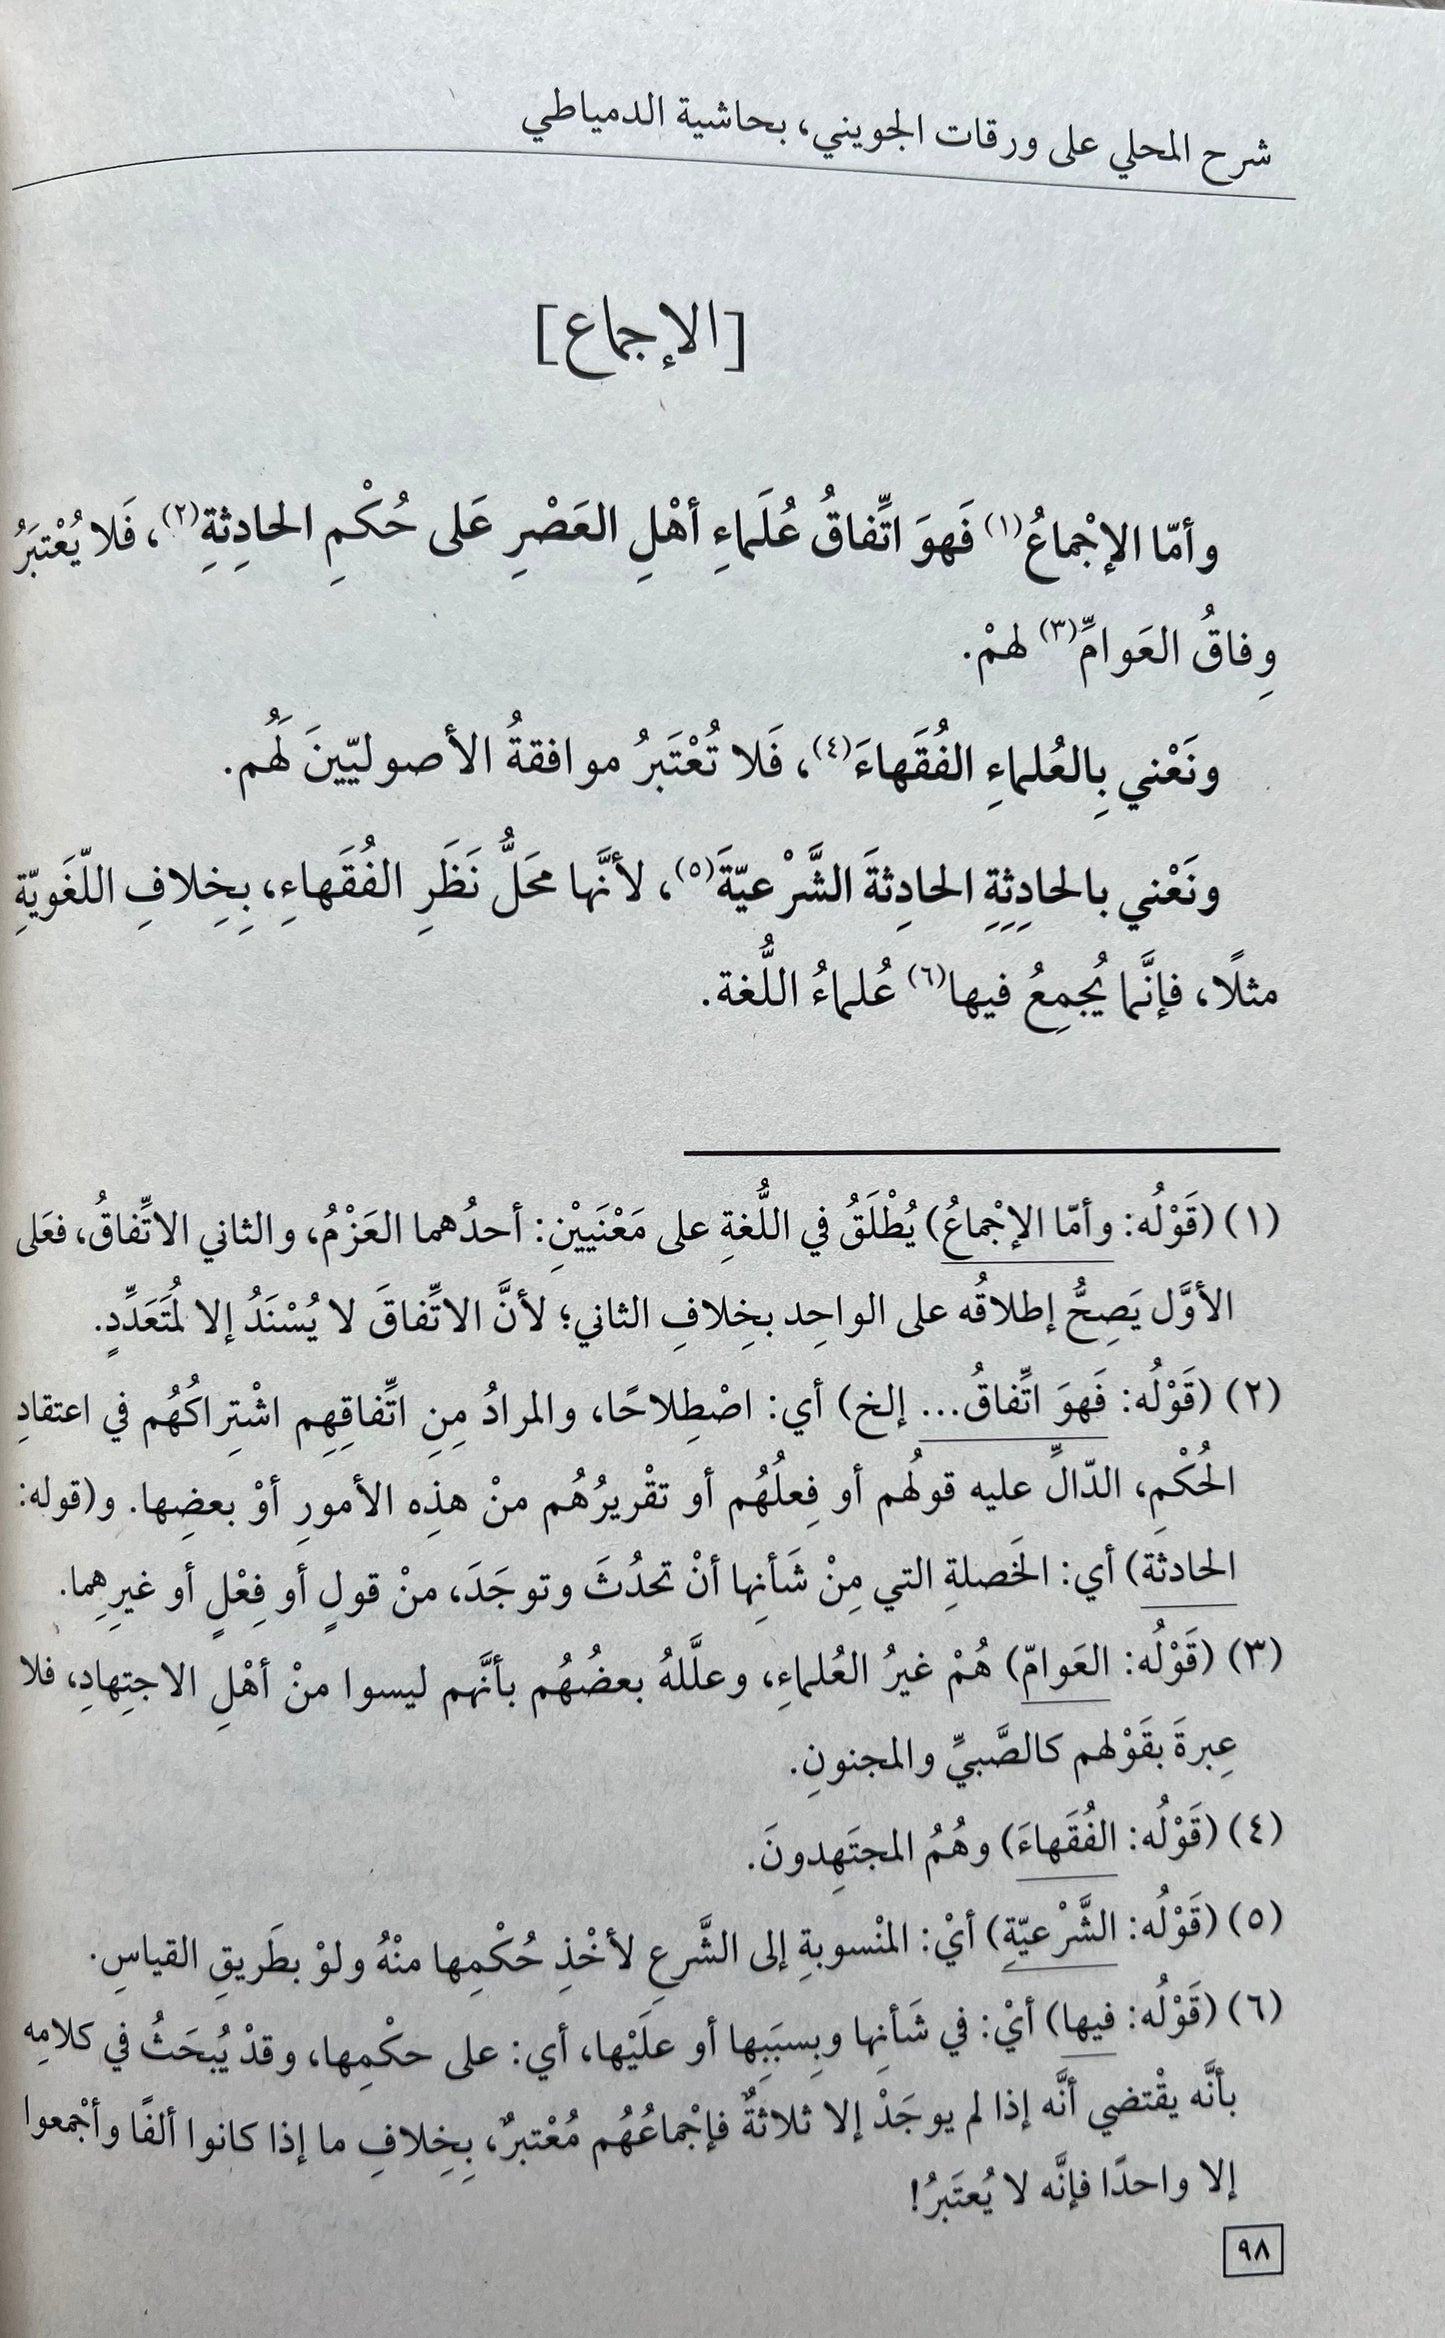 شرح المحلي على ورقات الجويني، بحاشية الدمياطي
[الإجماع]
وأمّا الإجْماعُ(١) فَهوَ اتِّفاقُ عُلَماءِ أهْلِ العَصْرِ عَلى حُكْمِ الحادِثةِ(٢)، فَلا يُعْتبَرُ
وِفاقُ العَوامِّ(٣) لهمْ.
ونَعْني بِالعُلماءِ الفُقَهاءَ(٤)، فَلا تُعْتَبرُ موافقةُ الأصوليّينَ لَهُم.
ونَعْني بالحادِثِةِ الحادِثةَ الشَّرْعيّةَ(٥)، لأنَّها محَلُّ نَظَرِ الفُقَهاءِ، بِخِلافِ اللّغَويّةِ
مثلًا، فإنَّما يُجمِعُ فيها(٦) عُلماءُ اللُّغة.
(١) (قَوْلُه: وأمّا الإجْماعُ) يُطْلَقُ في اللُّغةِ على مَعْنَيَيْنِ: أحدُهما العَزْمُ، والثاني الاتِّفاقُ، فعَلى
الأوَّل يَصِحُّ إطلاقُه على الواحِد بخِلافِ الثاني؛ لأنَّ الاتِّفاقَ لا يُسْنَدُ إلا لمُتَعَدِّدٍ.
(٢) (قَوْلُه: فَهوَ اتِّفاقُ... إلخ) أي: اصْطِلاحًا، والمرادُ مِنِ اتِّفاقِهِم اشْتِراكُهُم في اعتقادِ
الحُكْم، الدّالِّ عليه قولُهم أو فِعلُهُم أو تقْريرُهُم منْ هذِه الأمورِ أوْ بعضِها. و(قوله:
الحادثَة) أي: الخَصلةِ التي مِنْ شَأنِها أنْ تحدُثَ وتوجَدَ، منْ قولٍ أو فِعْلٍ أو غيرِهِما.
(٣) (قَوْلُه: العَوامّ) هُمْ غيرُ العُلماءِ، وعلَّلهُ بعضُهُم بأنَّهم ليسوا منْ أهْلِ الاجتِهادِ، فلا
عِبرةَ بقَوْلهم كالصَّبيِّ والمجنونِ.
(٤) (قَوْلُه: الفُقَهاءَ) وهُمُ المجتَهِدونَ.
(٥) (قَوْلُه: الشَّرْعيّةِ) أيْ: المنْسوبةِ إلى الشَّرعِ لأخْذِ حُكْمِها منْهُ ولوْ بطَريقِ القياسِ.
(٦) (قَوْلُه: فيها) أيْ: في شَأنِها وبِسبَبِها أو علَيْها، أي: على حكْمِها، وقدْ يُبحَثُ في كلامِه
بأنَّه يقْتضي أنَّه إذا لم يوجَدْ إلا ثلاثةٌ فإجْماعُهُم مُعْتبرٌ، بِخِلافِ ما إذا كانوا ألفًا وأجْمعوا
إلا واحدًا فإنَّه لا يُعتَبرُ!
٩٨